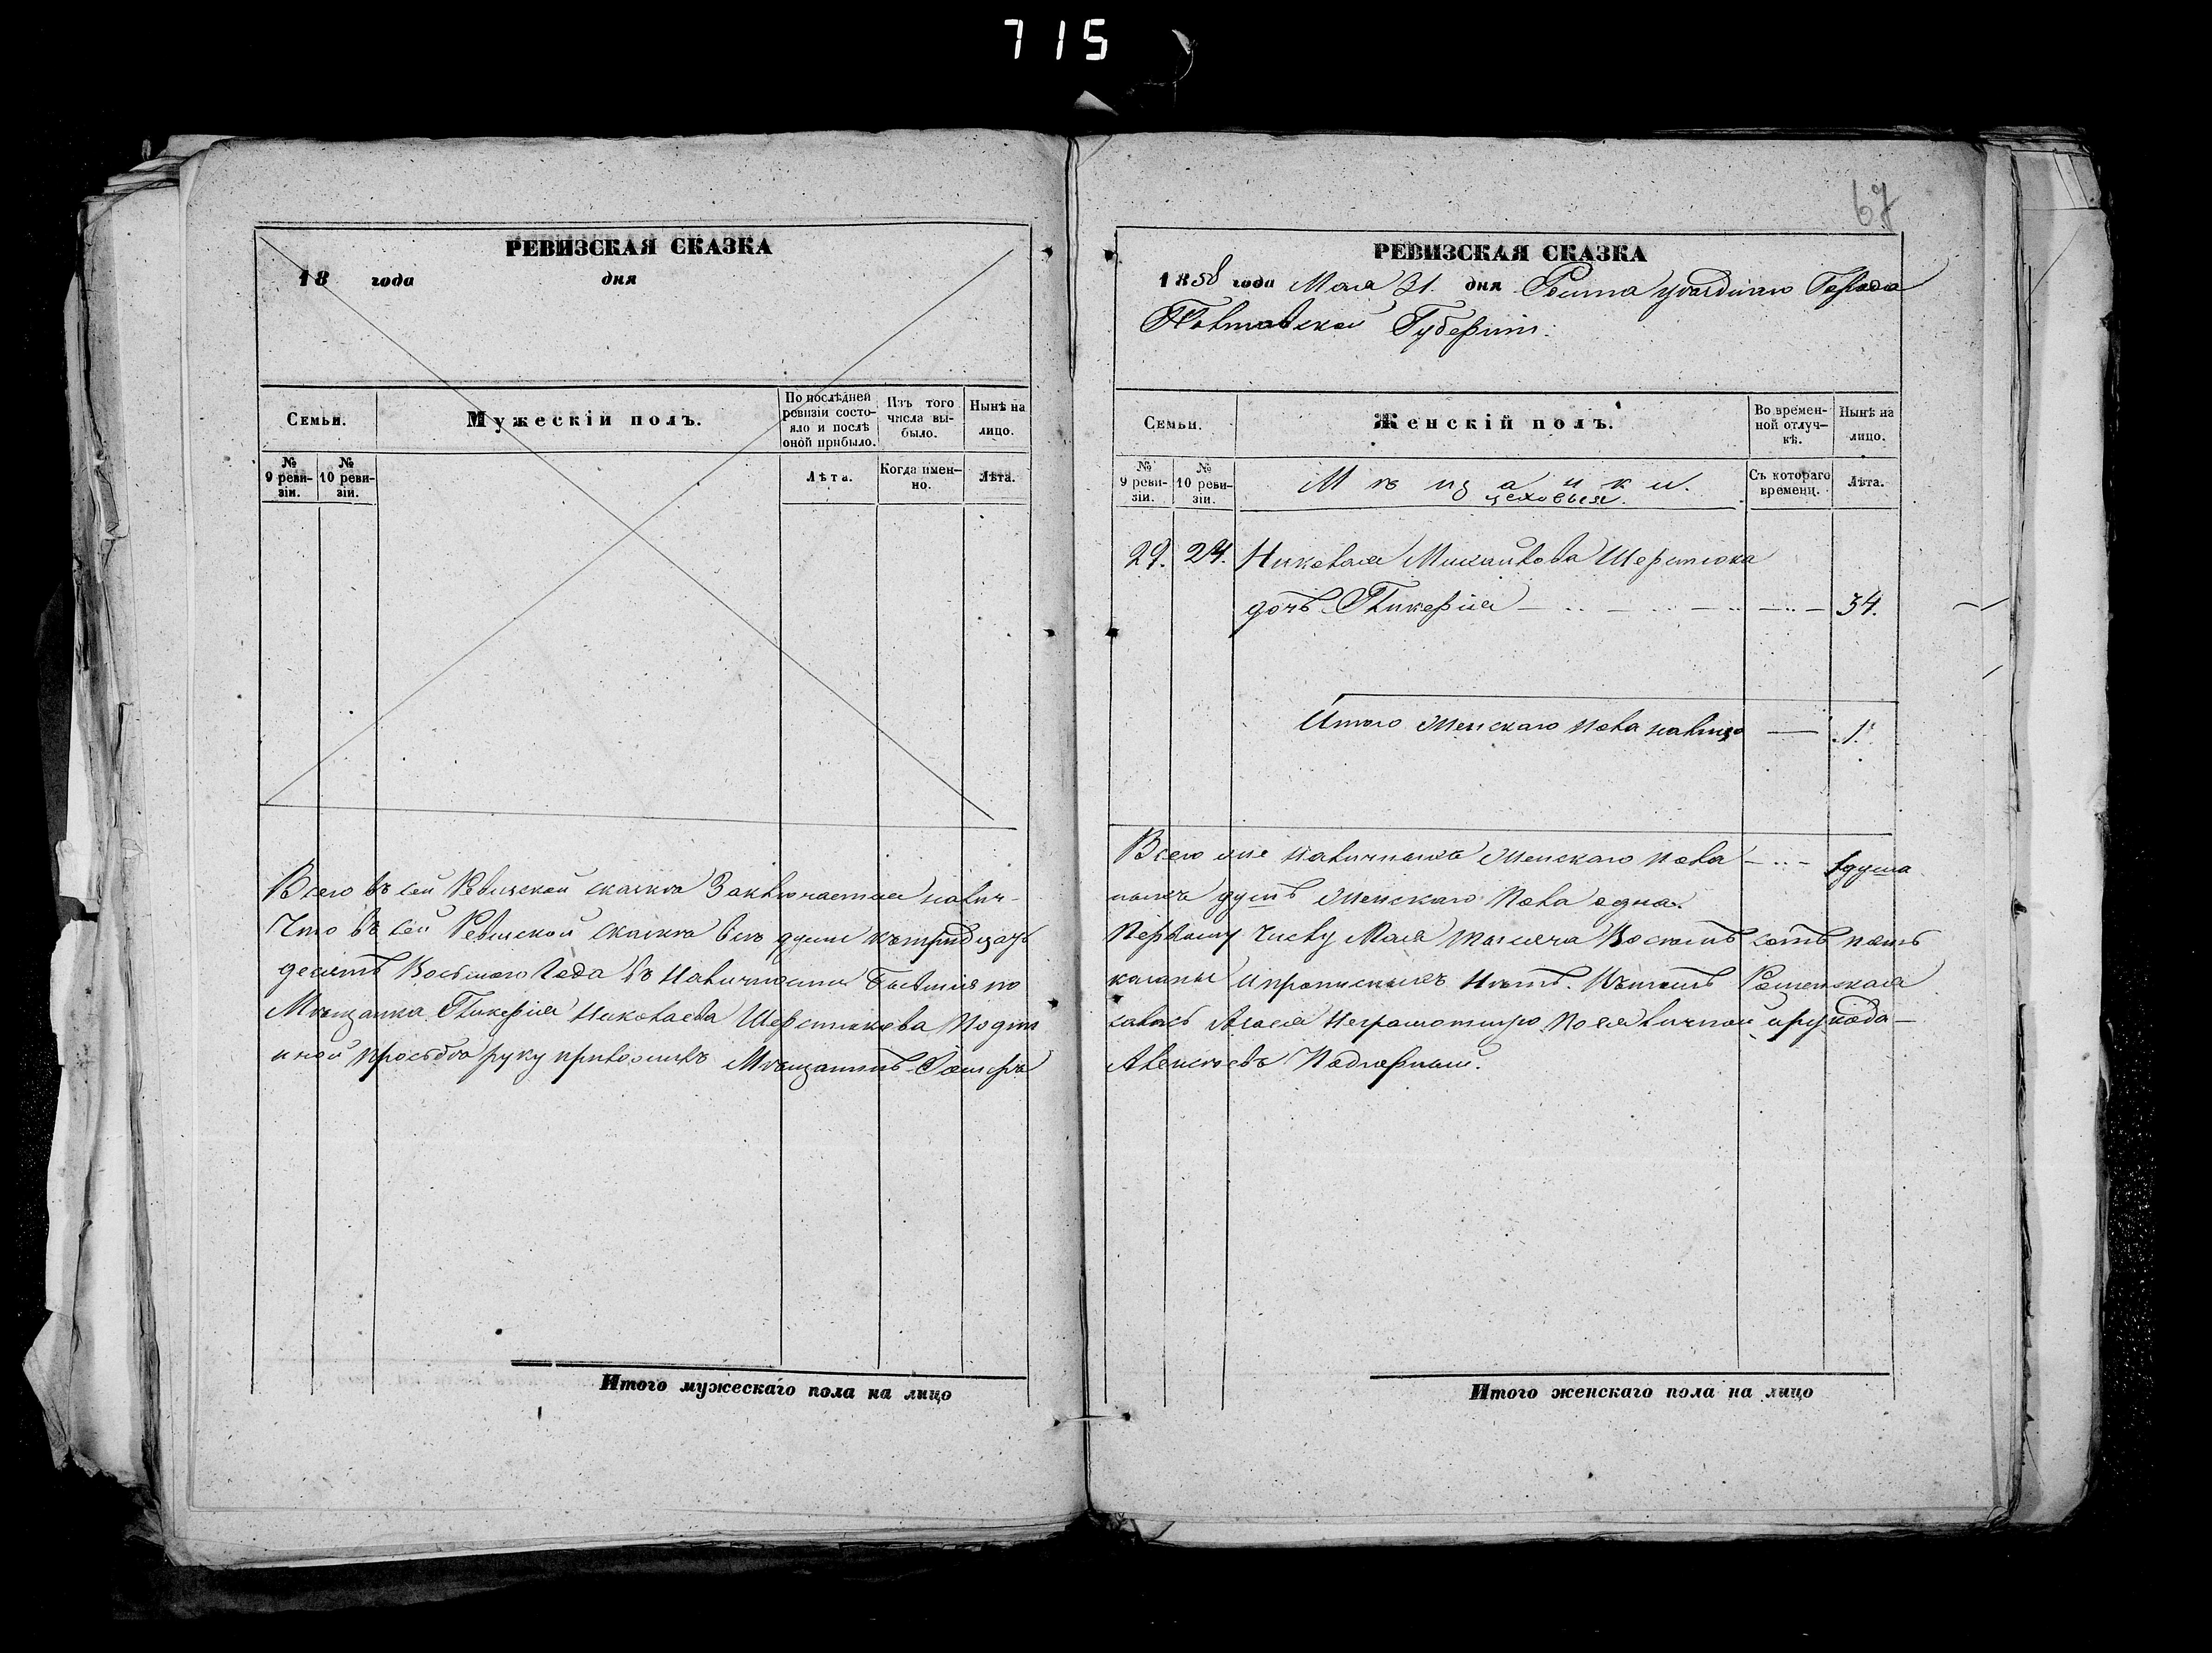 715
67
РЕВИЗСКАЯ СКАЗКА
18 года дня
Семьи.
Мужескій полъ.
По послѣдней ревизіи состояло и послѣ оной прибыло.
Изъ того числа выбыло.
Нынѣ на лицо.
№ 9 ревизіи.
№ 10 ревизіи.
Лѣта.
Когда именно.
Лѣта.
Всего въ сей Ревизской сказкѣ Заключается налич-
Что въ сей Ревизской сказкѣ всѣ души къ тридцать
десятъ Восьмого Года въ Наличности Бывшія по
Мѣщанка Гликерія Николаева Шерстюкова Подп
ной прозьбѣ руку приложилъ Мѣщанинъ
Итого мужескаго пола на лицо
РЕВИЗСКАЯ СКАЗКА
1858 года Мая 31. дня Роменъ уѣзднаго Города
Полтавской Губерніи.
Семьи.
Женскій полъ.
Во временной отлучкѣ.
Нынѣ на лицо.
№ 9 ревизіи.
№ 10 ревизіи.
Мѣщанки.
цеховыя.
Съ котораго времени.
Лѣта.
29. 24. Николая Михайлова Шерстюка
дочь Гликерія 34.
Итого Женскаго пола налицо 1.
Всего же наличныхъ Женскаго пола 1 душа
ныхъ душъ Женскаго Пола одна.
Первому Числу Мая тысяча Восемь сотъ пять
казаны и прописныхъ Нѣтъ. Роменская
Неграмотную По ея личной и рукода-
Алексѣевъ
Итого женскаго пола на лицо